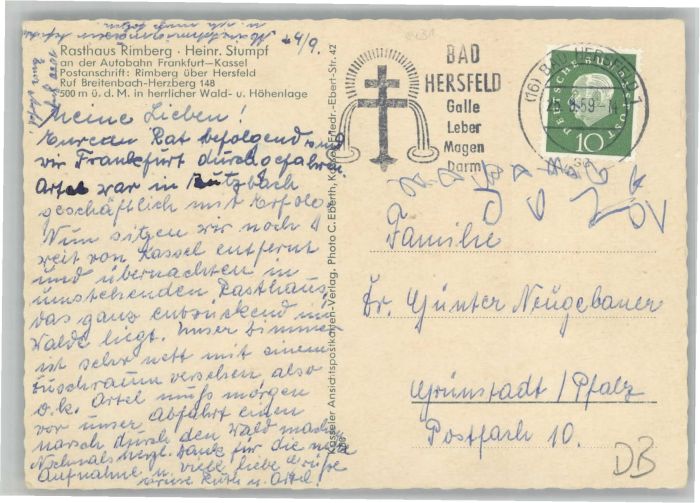 24/9.
Rasthaus Rimberg · Heinr. Stumpf
an der Autobahn Frankfurt-Kassel
Postanschrift: Rimberg über Hersfeld
Ruf Breitenbach-Herzberg 148
500 m ü. d. M. in herrlicher Wald- u. Höhenlage
Meine Lieben!
Eueren Rat befolgend sind
wir Frankfurt durchgefahren.
Artel war in Butzbach
geschäftlich mit Erfolg.
Nun sitzen wir noch
weit von Kassel entfernt
und übernachten in
umstehenden Rasthaus
das ganz entzückend im
Walde liegt. Unser Zimmer
ist sehr nett mit einem
Duschraum versehen also
o.k. Artel muß morgen
vor unser Abfahrt einen
marsch durch den Wald machen
Nochmals herzl. Dank für die nette
Aufnahme u. viele liebe Grüße
Eure Ruth u. Artel.
Kasseler Ansichtspostkarten-Verlag, Photo C. Eberth, Kassel, Friedr.-Ebert-Str. 42
BAD
HERSFELD
Galle
Leber
Magen
Darm
(16) BAD HERSFELD 1
25.9.59-14
DEUTSCHE BUNDESPOST
10
Familie
Dr. Günter Neugebauer
Grünstadt / Pfalz
Postfach 10.
DB